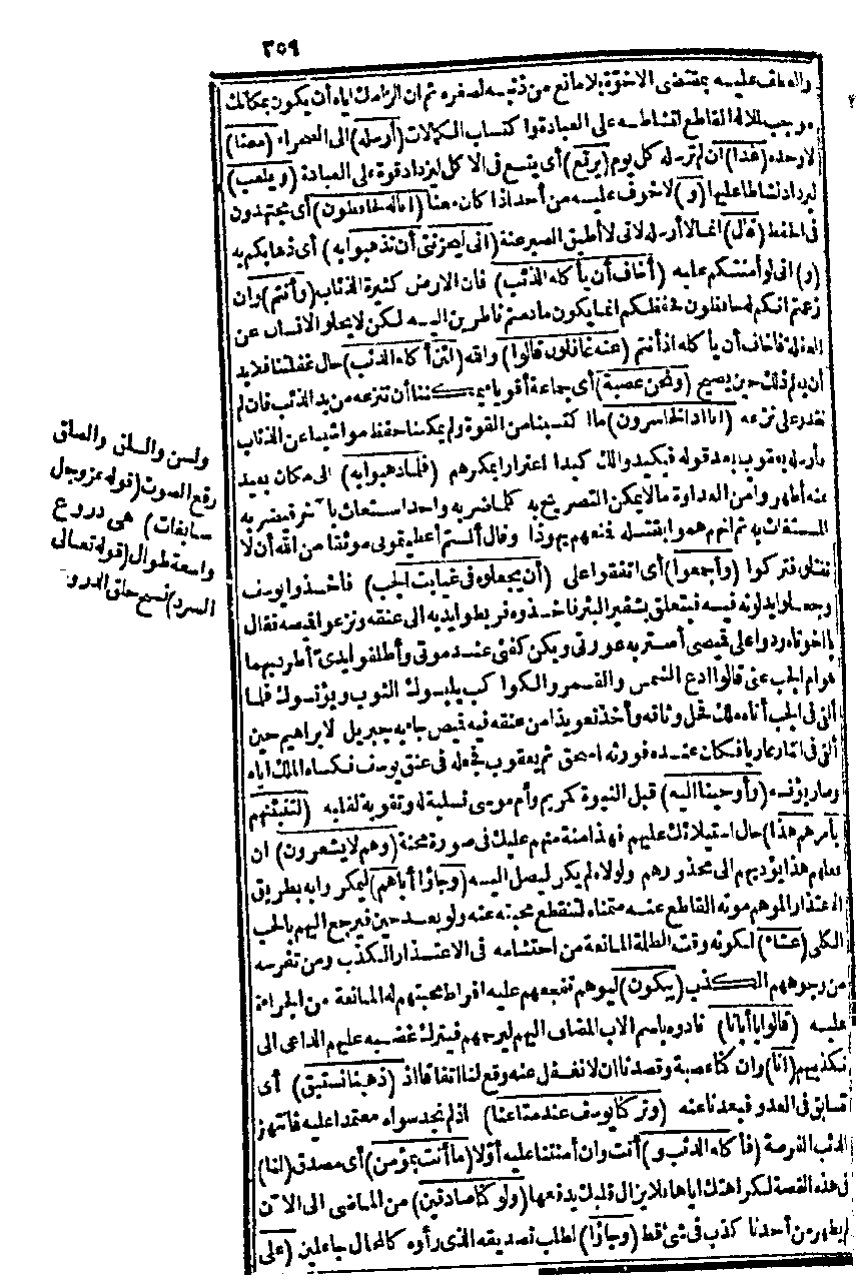 ٣٥٩
والعطف عليه بمقتضى الاخوة بلا مانع من ذنبه لصغره ثم ان الزامك اياه أن يكون بمكانك
موجب للملال القاطع لنشاطه على العبادة واكتساب الكمالات (أرسله) الى الصحراء (معنا)
لا وحده (غدا) ان لم ترسله كل يوم (يرتع) أى يتسع فى الاكل ليزداد قوة على العبادة (ويلعب)
ليزداد نشاطا عليها (و) لا خوف عليه من أحد اذا كان معنا (اناله لحافظون) أى مجتهدون
فى الحفظ (قال) انما لا أرسله لانى لا أطيق الصبر عنه (انى ليحزننى أن تذهبوا به) أى ذهابكم به
(و) انى لو أمنتكم عليه (أخاف أن يأكله الذئب) فان الارض كثيرة الذئاب (وأنتم) وان
زعمتم انكم له حافظون فحفظكم انما يكون مادمتم ناظرين اليه لكن لا يخلو الانسان عن
الغفلة فاخاف أن يأكله اذ أنتم (عنه غافلون قالوا) والله (لئن أكله الذئب) حال غفلتنا فلا بد
أن يؤلم ذلك حين يصيح (ونحن عصبة) أى جماعة أقوياء يمكننا أن ننتزعه من يد الذئب فان لم
نقدر على نزعه (انا اذا لخاسرون) ما اكتسبنا من القوة ولم يمكنا حفظ مواشينا عن الذئاب
فأرسله يعقوب بعد قوله فيكيدوا لك كيدا اغترارا بمكرهم (فلما ذهبوا به) الى مكان بعيد
عنه أظهروا من العداوة ما لا يمكن التصريح به كلما ضربه واحد استغاث بآخر فيضربه
المستغاث به ثم انهم هموا بقتله فمنعهم يهوذا وقال ألستم أعطيتمونى موثقا من الله أن لا
تقتلوه فتركوا (وأجمعوا) أى اتفقوا على (أن يجعلوه فى غيابت الجب) فأخذوا يوسف
وجعلوا يدلونه فيه فيتعلق بشفير البئر فأخذوه فربطوا يديه الى عنقه ونزعوا قميصه فقال
يا اخوتاه ردوا على قميصى أستر به عورتى ويكن كفنى عند موتى وأطلقوا يدى أطرد بهما
هوام الجب عنى قالوا ادع الشمس والقمر والكواكب يلبسوك الثوب ويؤنسوك فلما
ألقى فى الجب أتاه ملك فحل وثاقه وأخذ تعويذا من عنقه فيه قميص جاء به جبريل لابراهيم حين
ألقى فى النار عاريا فكان عنده فورثه اسحق ثم يعقوب فجعله فى عنق يوسف فكساه الملك اياه
وصار يؤنسه (وأوحينا اليه) قبل النبوة كمريم وأم موسى تسلية له وتقوية لقلبه (لتنبئنهم
بأمرهم هذا) حال استيلائك عليهم فهذا منة منهم عليك فى صورة محنة (وهم لا يشعرون) ان
فعلهم هذا يؤديهم الى محذورهم ولولاه لم يكن ليصل اليه (وجاؤا أباهم) ليمكروا به بطريق
الاعتذار الموهم موته القاطع عنه متمناه لتنقطع محبته عنه ولو بعد حين فيرجع اليهم بالحب
الكلى (عشاء) لكونه وقت الظلمة المانعة من احتشامه فى الاعتذار الكذب ومن تفرسه
من وجوههم الكذب (يبكون) ليوهم تفجعهم عليه افراط محبتهم له المانعة من الجراءة
عليه (قالوا يا أبانا) نادوه باسم الاب المضاف اليهم ليرحمهم فيترك غضبه عليهم الداعى الى
تكذيبهم (انا) وان كنا عصبة وقصدنا ان لا نغفل عنه وقع لنا اتفاقا اذ (ذهبنا نستبق) أى
نتسابق فى العدو فبعدنا عنه (وتركنا يوسف عند متاعنا) اذ لم نجد سواه معتمدا عليه فانتهز
الذئب الفرصة (فأكله الذئب و) أنت وان أمنتنا عليه أولا (ما أنت بمؤمن) أى مصدق (لنا)
فى هذه القصة لكراهتك اياها فلا يزال قلبك يدفعها (ولو كنا صادقين) من الماضى الى الآن
لم يظهر من أحدنا كذب فى شئ قط (وجاؤا) لطلب تصديقه الذى رأوه كالمحال جاعلين (على
ولسن والسلق والصلق
رفع الصوت (قوله عز وجل
سابغات) هى دروع
واسعة طوال (قوله تعالى
السرد) نسج حلق الدروع